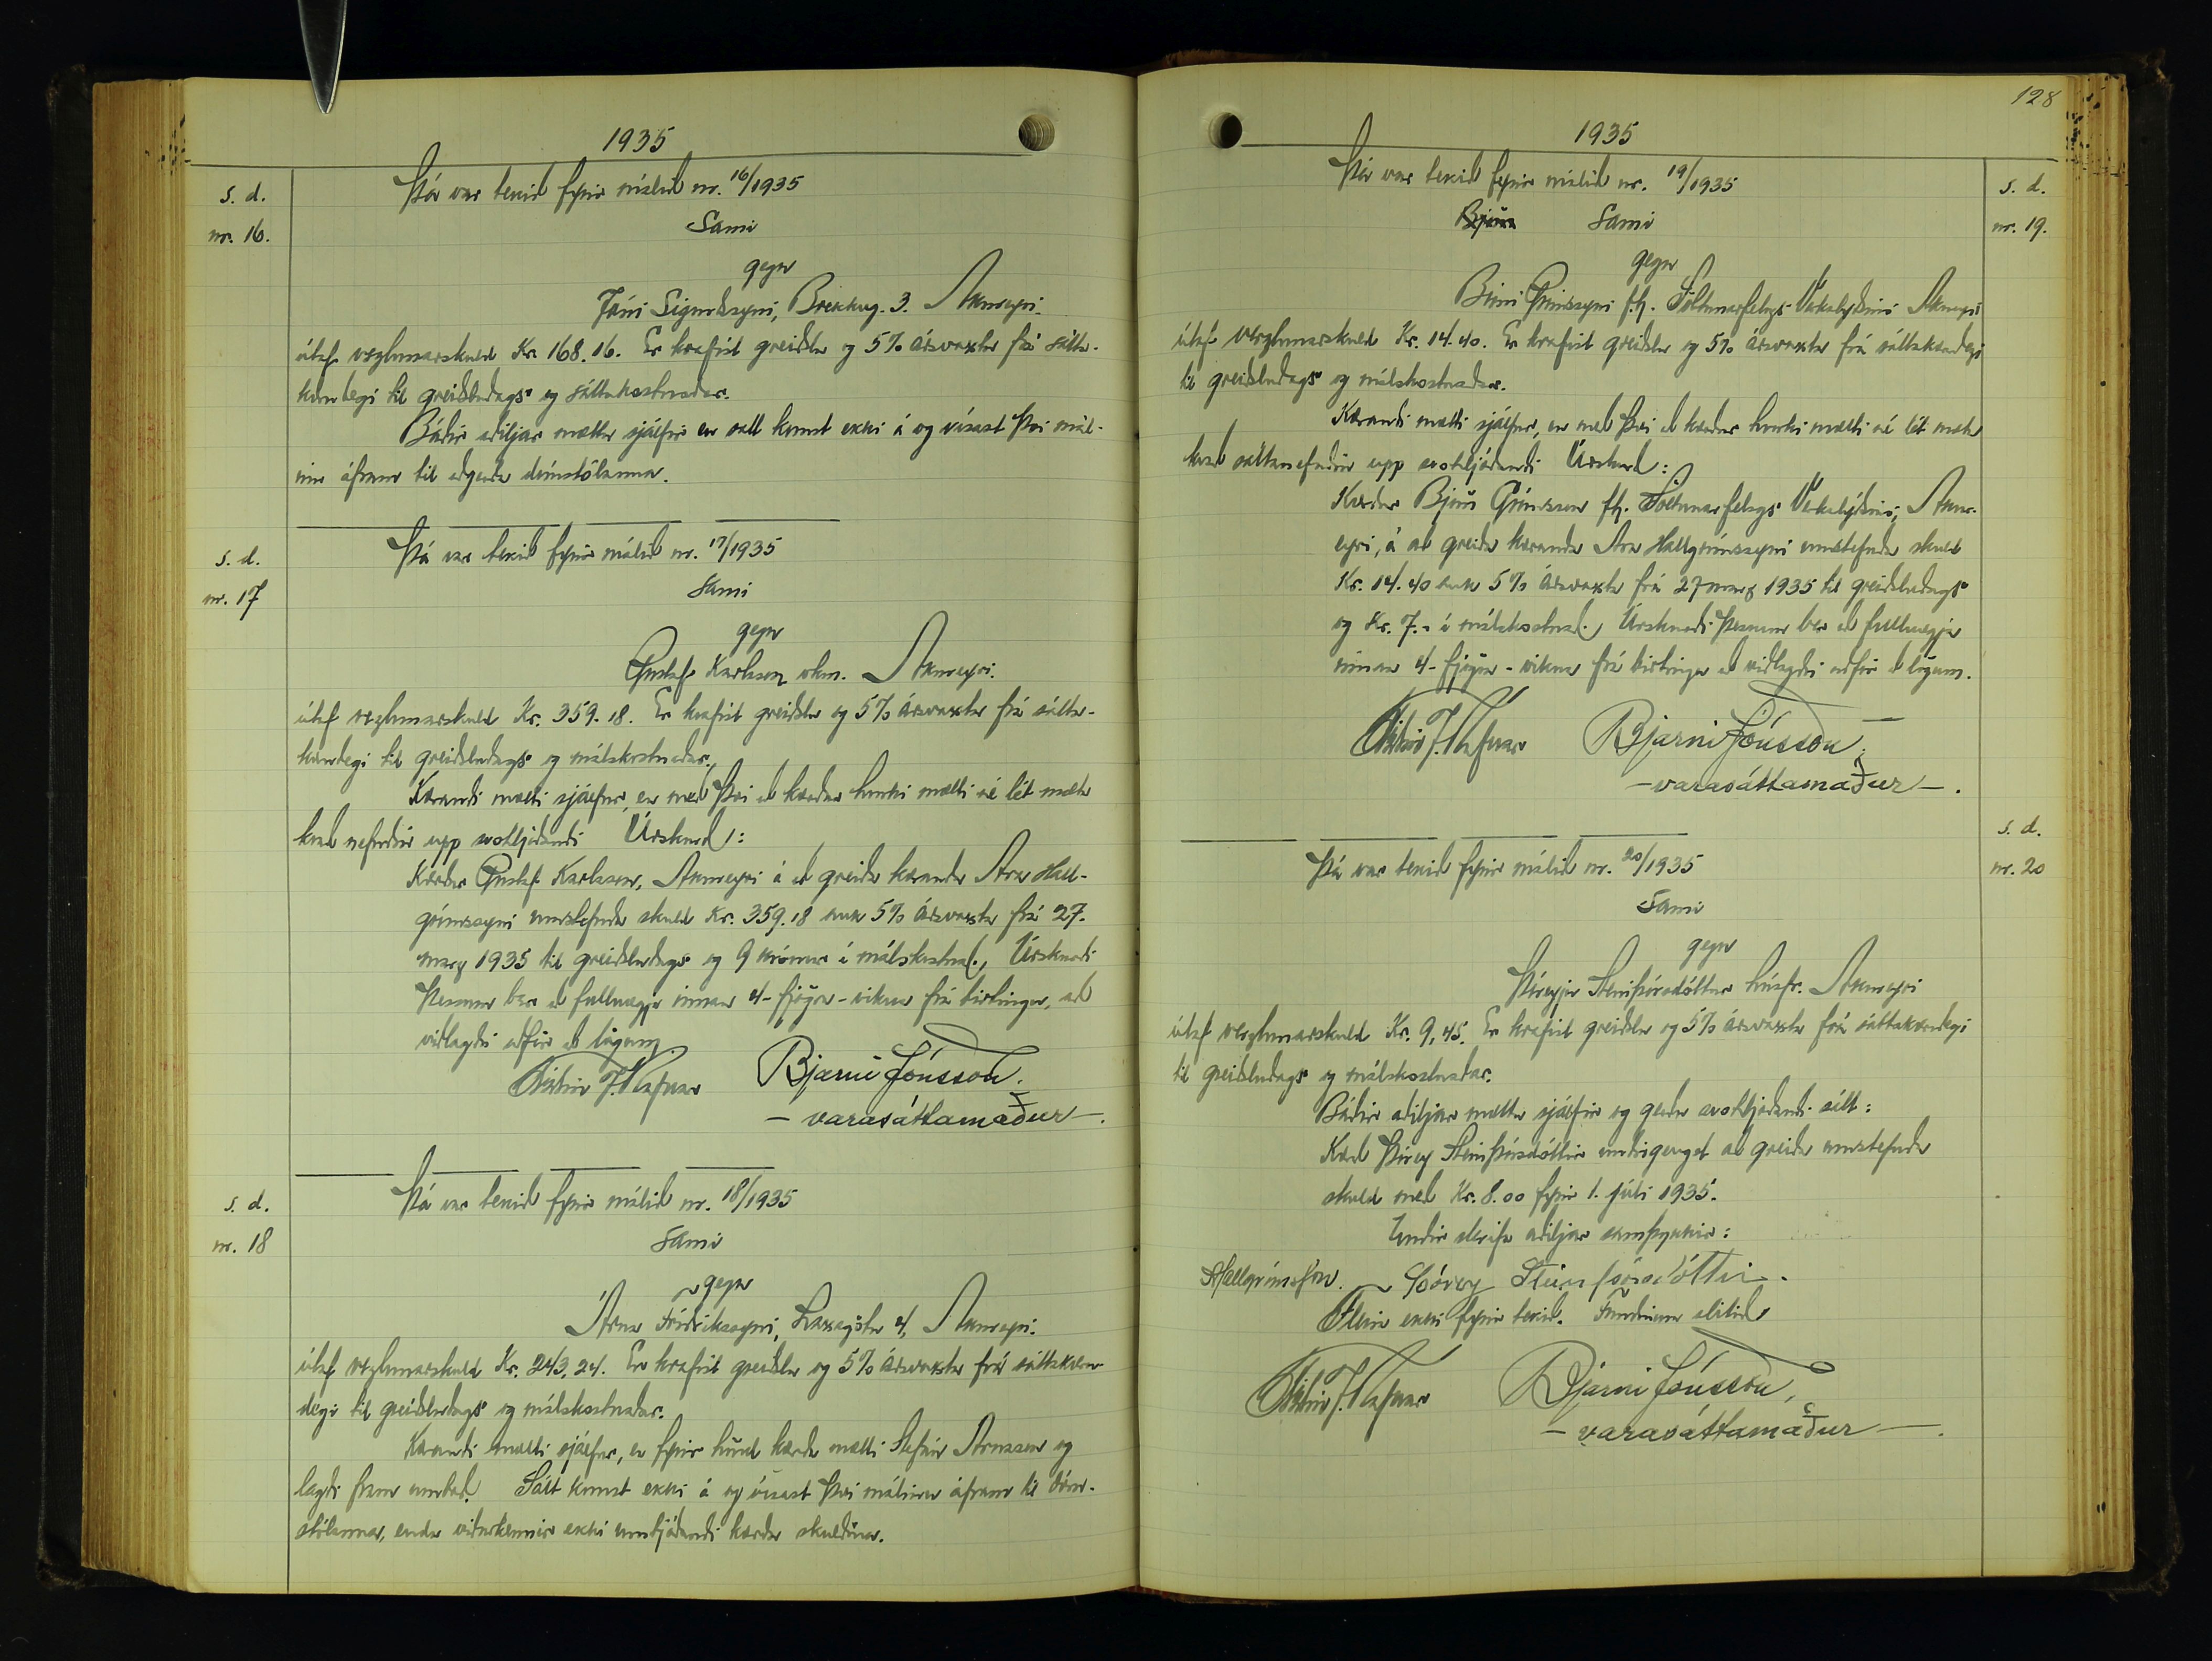 1935
s. d.
nr. 16.
Þá var tekið fyrir málið nr. 16/1935
Sami
gegn
Jóni Sigurðssyni, Brekkug. 3. Akureyri.
útaf verzlunarskuld Kr. 168.16. Er krafist greiðslu og 5% ársvaxta frá sátta-
kærudegi til greiðsludags og sáttakostnaðar.
Báðir aðiljar mættu sjálfir en sátt komst ekki á og vísast því mál-
inu áfram til aðgerða dómstólanna.
s. d.
nr. 17
Þá var tekið fyrir málið nr. 17/1935
Sami
gegn
Gustaf Karlsson vkm. Akureyri.
útaf verzlunarskuld Kr. 359.18. Er krafist greiðslu og 5% ársvaxta frá sátta-
kærudegi til greiðsludags og málskostnaðar.
Kærandi mætti sjálfur, en með því að kærður hvorki mætti né lét mæta
kvað nefndin upp svohljóðandi Úrskurð:
Kærður Gustaf Karlsson, Akureyri á að greiða kæranda Ara Hall-
grímssyni umstefnda skuld Kr. 359.18 auk 5% ársvaxta frá 27.
marz 1935 til greiðsludags og 9 krónur í málskostnað. Úrskurði
þessum ber að fullnægja innan 4-fjögra-vikna frá birtingu, að
viðlagðri aðför að lögum.
Bjarni Jónsson.
- varasáttamaður -.
s. d.
nr. 18
Þá var tekið fyrir málið nr. 18/1935
Sami
gegn
Árna Friðrikssyni, Laxagötu 4, Akureyri.
útaf verzlunarskuld Kr. 243,24. Er krafist greiðslu og 5% ársvaxta frá sáttakæru-
degi til greiðsludags og málskostnaðar.
Kærandi mætti sjálfur, en fyrir hönd kærða mætti Stefán Árnason og
lagði fram umboð. Sátt komst ekki á og vísast því málinu áfram til dóm-
stólanna, enda viðurkennir ekki umbjóðandi kærða skuldina.
128
1935
s. d.
nr. 19.
Þá var tekið fyrir málið nr. 19/1935
Björn Sami
gegn
Birni Grímssyni f.h. Söltunarfélags Verkalýðsins Akureyri
útaf verzlunarskuld Kr. 14.40. Er krafist greiðslu og 5% ársvaxta frá sáttakærudegi
til greiðsludags og málskostnaðar.
Kærandi mætti sjálfur, en með því að kærður hvorki mætti né lét mæta
kvað sáttanefndin upp svohljóðandi Úrskurð:
Kærður Björn Grímsson fh. Söltunarfélags Verkalýðsins, Akur-
eyri, á að greiða kæranda Ara Hallgrímssyni umstefnda skuld
Kr. 14.40 auk 5% ársvaxta frá 27 marz 1935 til greiðsludags
og Kr. 7.- í málskostnað. Úrskurði þessum ber að fullnægja
innan 4-fjögra-vikna frá birtingu að viðlagðri aðför að lögum.
Bjarni Jónsson.
- varasáttamaður -.
s. d.
nr. 20
Þá var tekið fyrir málið nr. 20/1935
Sami
gegn
Þóreyju Steinþórsdóttur húsfr. Akureyri
útaf verzlunarskuld Kr. 9,45. Er krafist greiðslu og 5% ársvaxta frá sáttakærudegi
til greiðsludags og málskostnaðar.
Báðir aðiljar mættu sjálfir og gerðu svohljóðandi sátt:
Kærð Þórey Steinþórsdóttir undirgengst að greiða umstefnda
skuld með Kr. 8.00 fyrir 1. júli 1935.
Undir skrifa aðiljar samþykkir:
AHallgrímsson. Þórey Steinþórsdóttir.
Fleira ekki fyrir tekið. Fundinum slitið.
Bjarni Jónsson,
- varasáttamaður -.